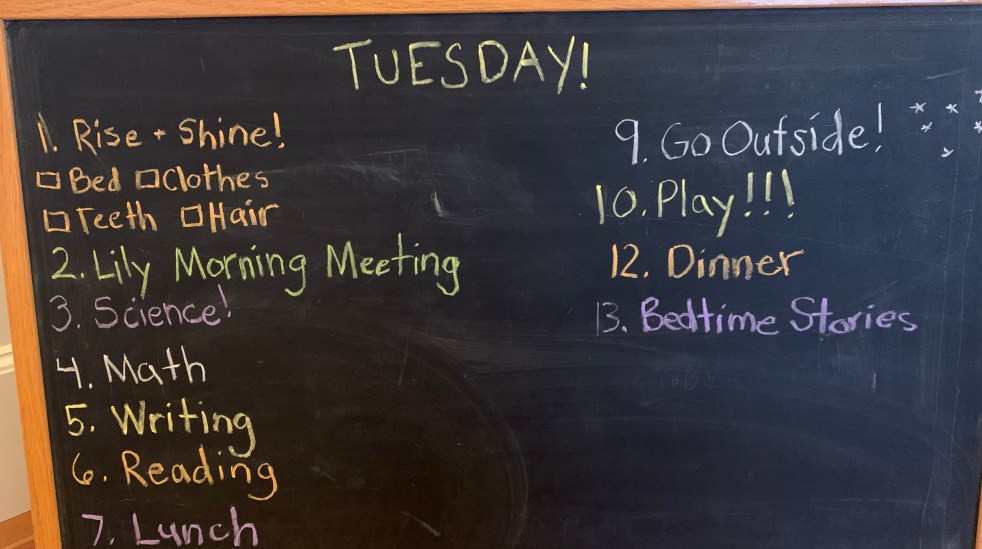 TUESDAY!
1. Rise + Shine!
□ Bed □ Clothes
□ Teeth □ Hair
2. Lily Morning Meeting
3. Science!
4. Math
5. Writing
6. Reading
7. Lunch
9. Go Outside!
10. Play!!!
12. Dinner
13. Bedtime Stories